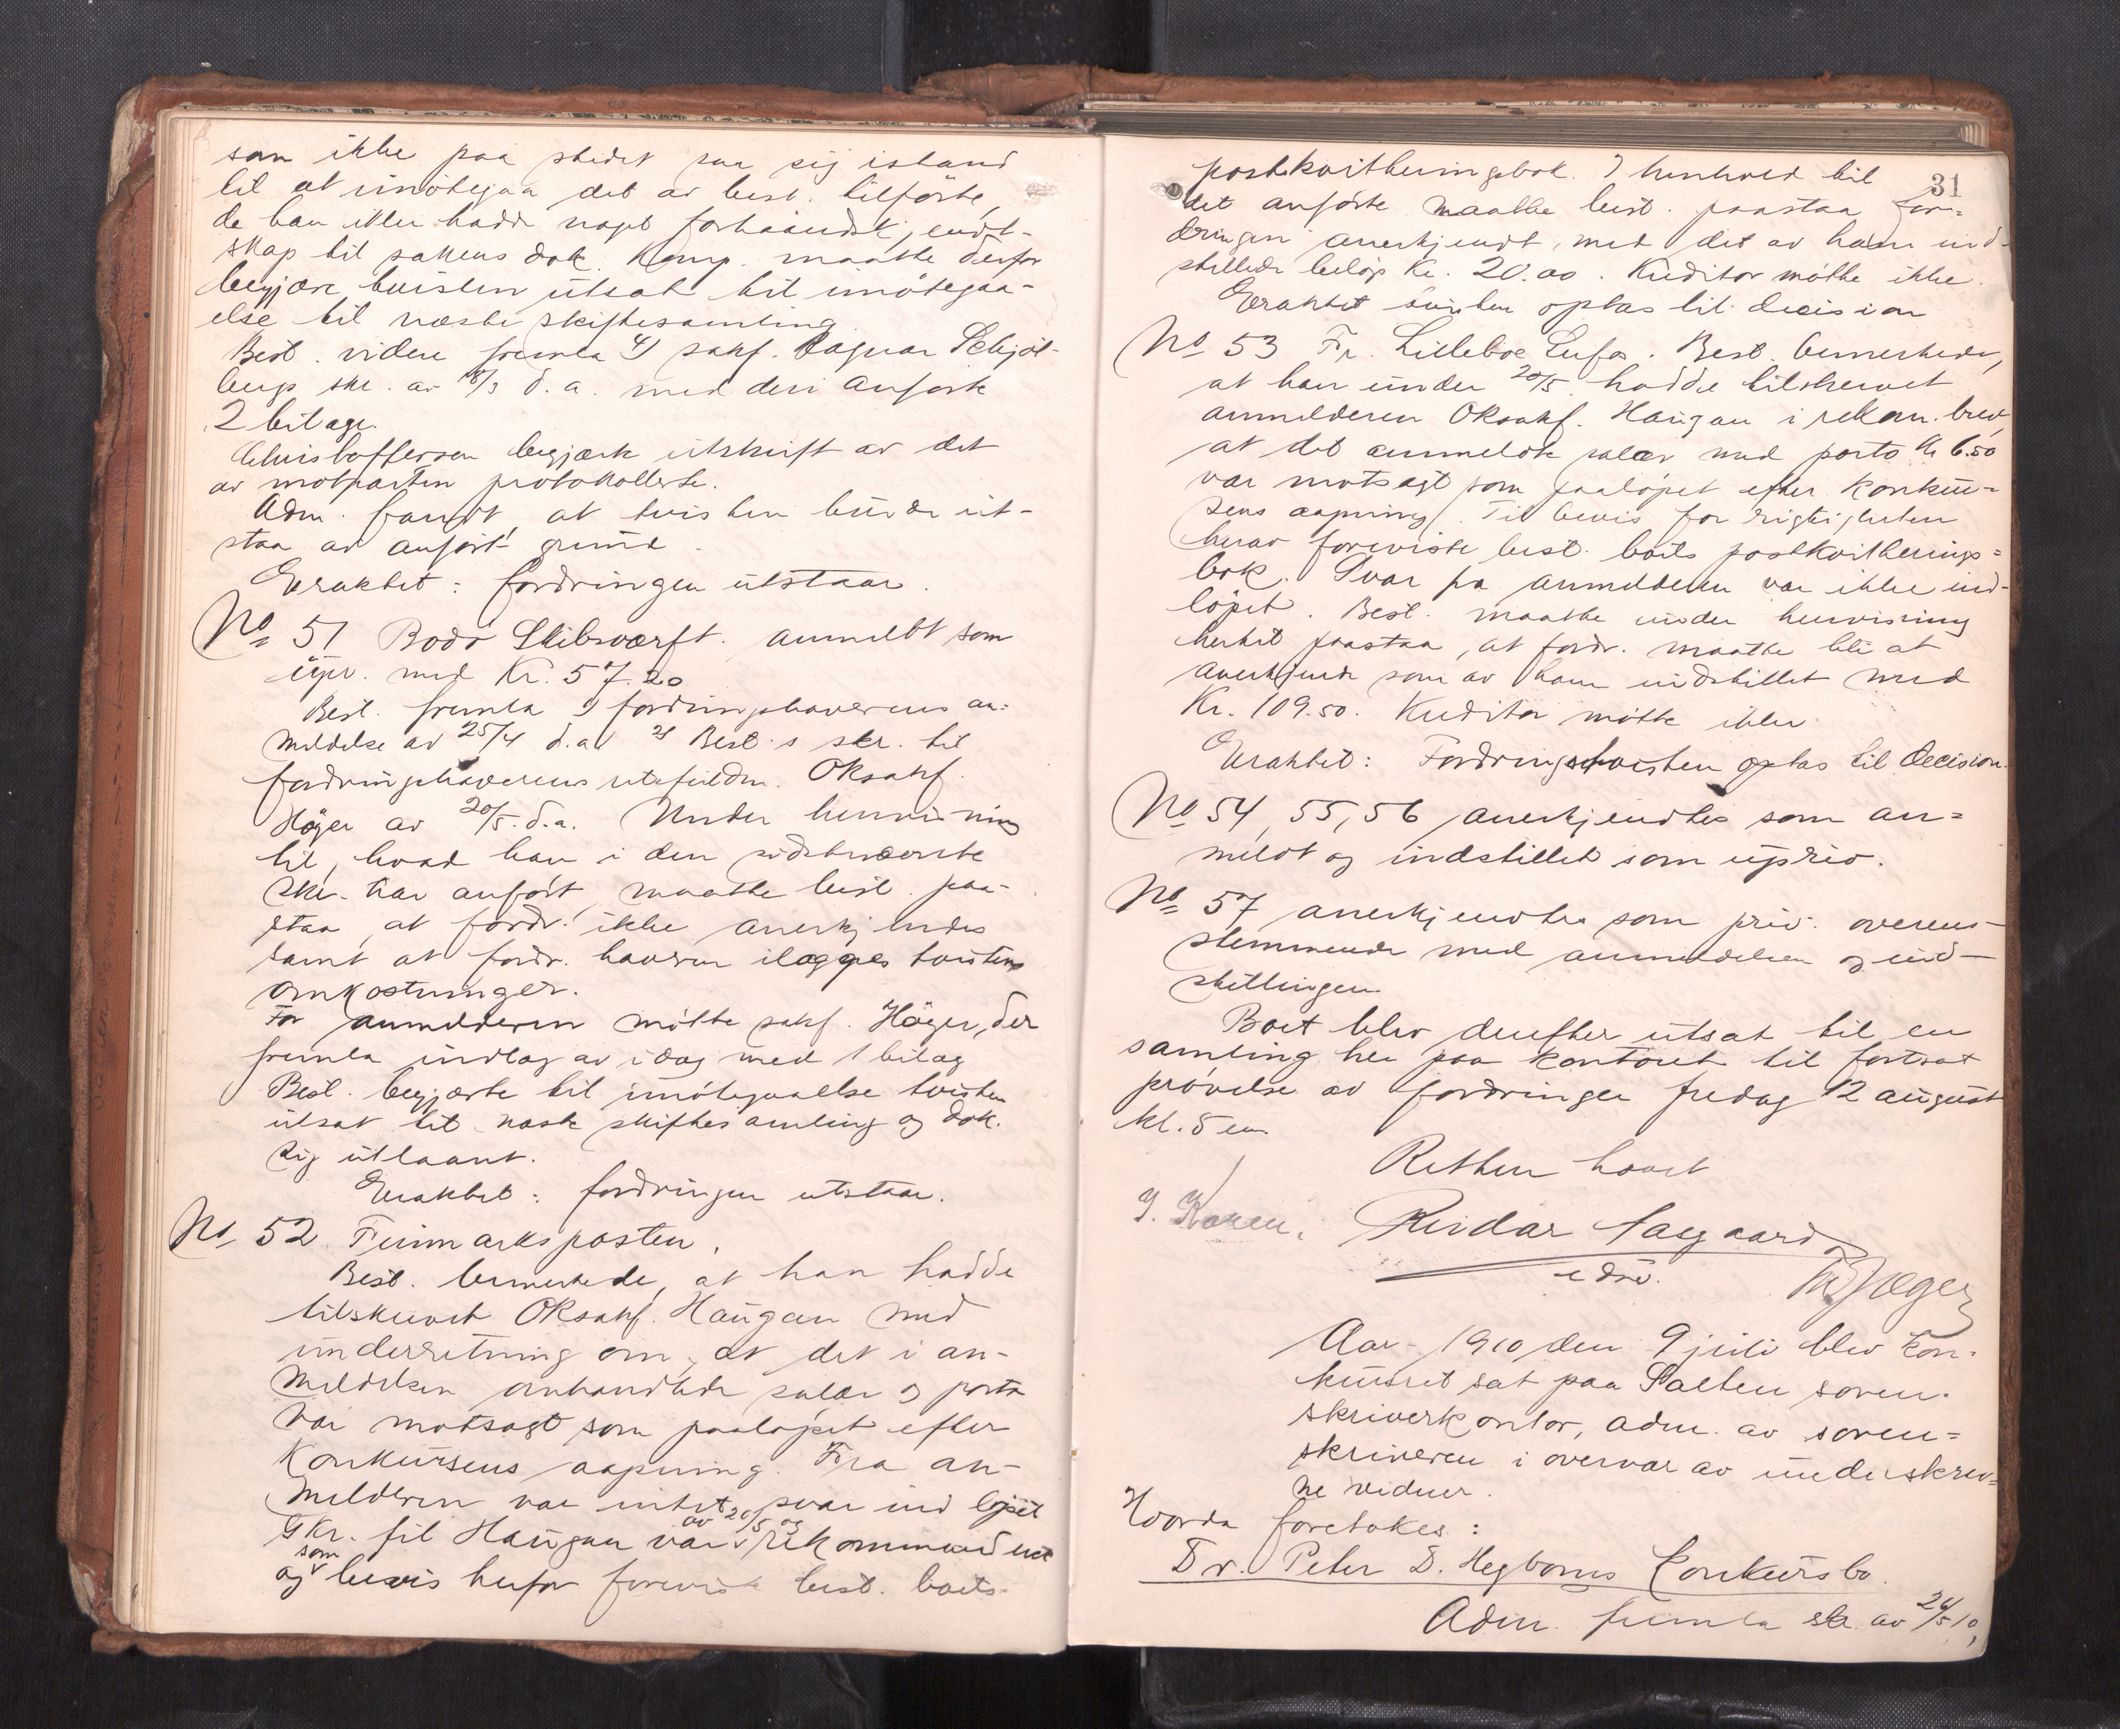 som ikke paa stedet saa sig istand
til at imøtegaa det av best. tilførte,
da han ikke hadde noget forhaands kjendt-
skap til sakens dok. Komp. maatte derfor
begjære tvisten utsat til imøtegaa-
else til næste skiftesamling.
Best. videre fremla 4) sakf. Ragnar Schjøl-
bergs skr. av 18/3 d.a. med deri anførte
2 bilage.
Christoffersen begjærte utskrift av det
av motparten protokollerte.
Adm. fandt, at tvisten burde ut-
staa av anført grund.
Eraktet: fordringen utstaar.
No 51 Bodø Skibsværft. anmeldt som
upr. med Kr. 57.20
Best. fremla 1) fordringshaverens an-
meldelse av 25/4 d.a. 2) Best.s skr. til
fordringshaverens utsfuldm. Oksakf.
Høyer av 20/5 d.a. Under henvisning
til, hvad han i den sidstnævnte
skr. har anført, maatte best. paa-
staa, at fordr. ikke anerkjendes
samt at fordr.haveren ilægges tvistens
omkostninger.
For anmelderen møtte sakf. Høyer, der
fremla indlæg av idag med 1 bilag
Best. begjærte til imøtegaaelse tvisten
utsat til næste skiftesamling og dok.
sig utlaant.
Eraktet: fordringen utstaar.
No 52 Finmarksposten.
Best. bemerkede, at han hadde
tilskrevet Oksakf. Haugan med
underretning om, at det i an-
meldelsen omhandlede salær og porto
var motsagt som paaløpet efter
Konkursens aapning. Fra an-
melderen var intet svar indløpet
Skr. til Haugan av 20/5 var og rekommanderet
og som bevis herfor foreviste best. boets
31
postkvitteringsbok. I henhold til
det anførte maatte best. paastaa for-
dringen anerkjendt med det av ham ind-
stillede beløp Kr. 20.00. Kreditor møtte ikke.
Eraktet tvisten optas til decision
No 53 Fr. Lilleboe Eufo. Best. bemerkede,
at han under 20/5 hadde tilskrevet
anmelderen Oksakf. Haugan i rekom. brev,
at det anmeldte salær med porto Kr 6.50
var motsagt som paaløpet efter konkur-
sens aapning. Til bevis for rigtigheten
herav foreviste best. boets postkvitterings-
bok. Svar fra anmelderen var ikke ind-
løpet. Best. maatte under henvisning
hertil paastaa, at fordr. maatte bli at
anerkjende som av ham indstillet med
Kr. 109.50. Kreditor møtte ikke
Eraktet: Fordringstvisten optas til decision.
No 54, 55, 56 anerkjendtes som an-
meldt og indstillet som upriv.
No 57 anerkjendtes som priv. overens-
stemmende med anmeldelsen og ind-
stillingen
Boet blev derefter utsat til en
samling her paa kontoret til fortsat
prøvelse av fordringer fredag 12 august
kl. 5 em.
Retten hævet
J. Koren. Reidar Saegaard
edsv. Høyer
Aar 1910 den 9 juli blev kon-
kursret sat paa Salten soren-
skriverkontor, adm. av soren-
skriveren i overvær av underskrev-
ne vidner.
Hvorda foretokes:
Dr. Peter D. Hegboms Konkursbo.
Adm. fremla skr. av 24/5 10,